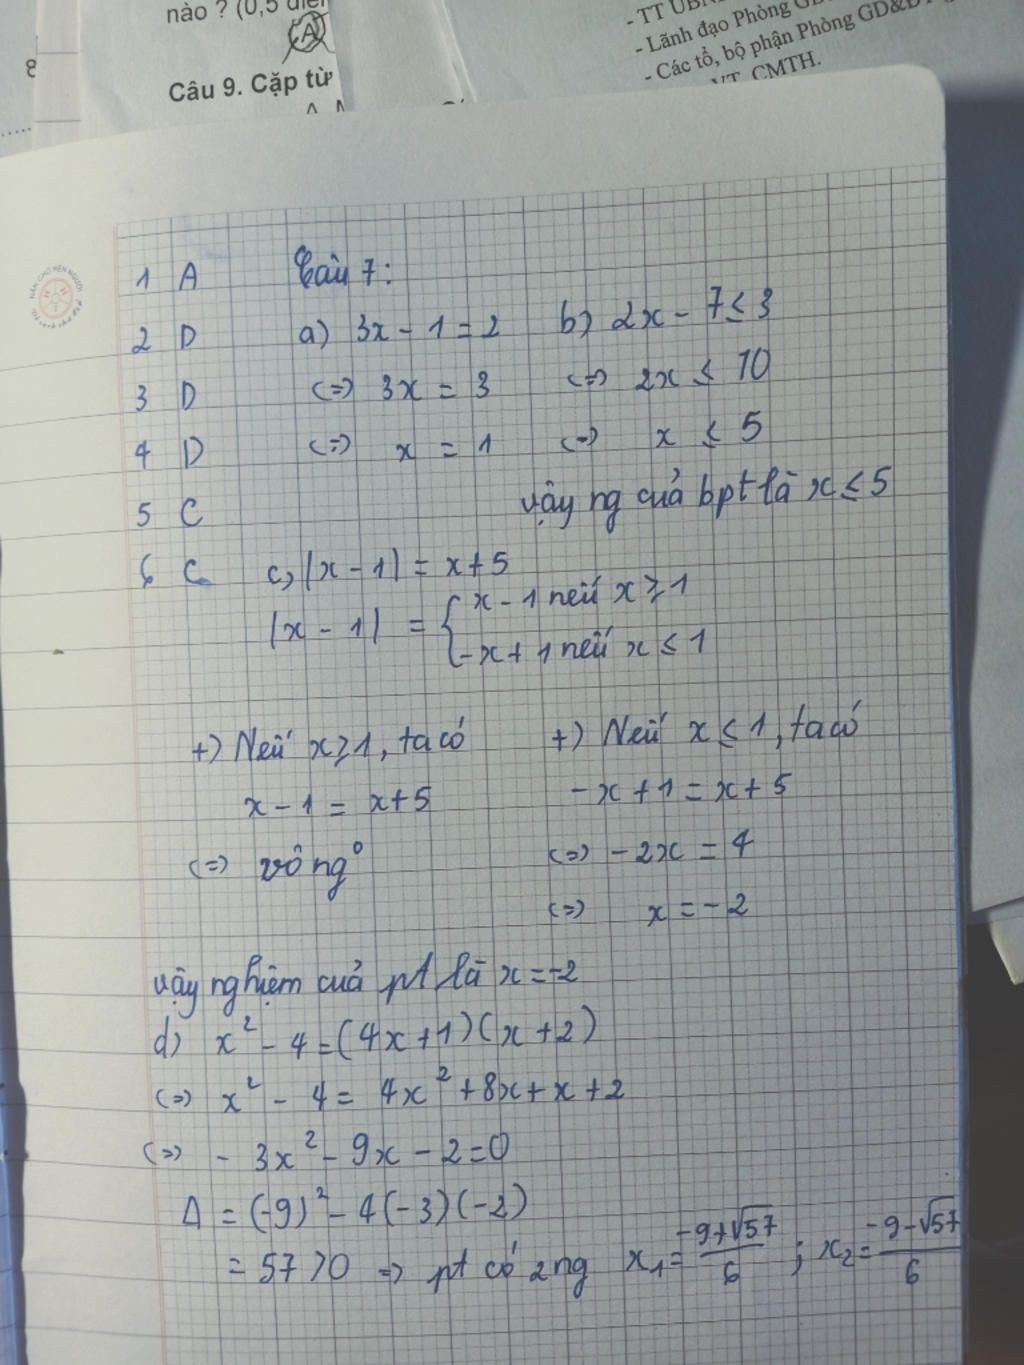 nào ? (0,5 điể
A
Câu 9. Cặp từ
8
- Lãnh đạo Phòng GD
- Các tổ, bộ phận Phòng GD&ĐT
VT, CMTH.
1 A
2 D
3 D
4 D
5 C
6 C
Câu 7:
a) 3x - 1 = 2 b) 2x - 7 ≤ 3
<=> 3x = 3 <=> 2x ≤ 10
<=> x = 1 <=> x ≤ 5
vậy ng của bpt là x ≤ 5
c, |x - 1| = x + 5
|x - 1| = { x - 1 nếu x ≥ 1
-x + 1 nếu x ≤ 1
+) Nếu x ≥ 1, ta có +) Nếu x ≤ 1, ta có
x - 1 = x + 5 -x + 1 = x + 5
<=> vô ng° <=> -2x = 4
<=> x = -2
vậy nghiệm của pt là x = -2
d) x² - 4 = (4x + 1)(x + 2)
<=> x² - 4 = 4x² + 8x + x + 2
<=> - 3x² - 9x - 2 = 0
Δ = (-9)² - 4(-3)(-2)
= 57 > 0 => pt có 2 ng x₁ = (-9+√57)/6 ; x₂ = (-9-√57)/6